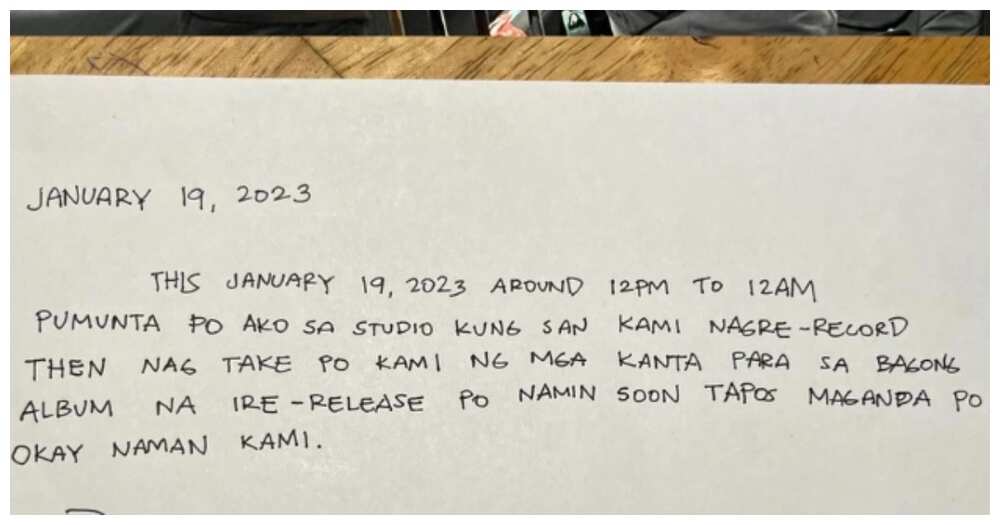 JANUARY 19, 2023
THIS JANUARY 19, 2023 AROUND 12PM TO 12AM
PUMUNTA PO AKO SA STUDIO KUNG SAN KAMI NAGRE-RECORD
THEN NAG TAKE PO KAMI NG MGA KANTA PARA SA BAGONG
ALBUM NA IRE-RELEASE PO NAMIN SOON TAPOS MAGANDA PO
OKAY NAMAN KAMI.